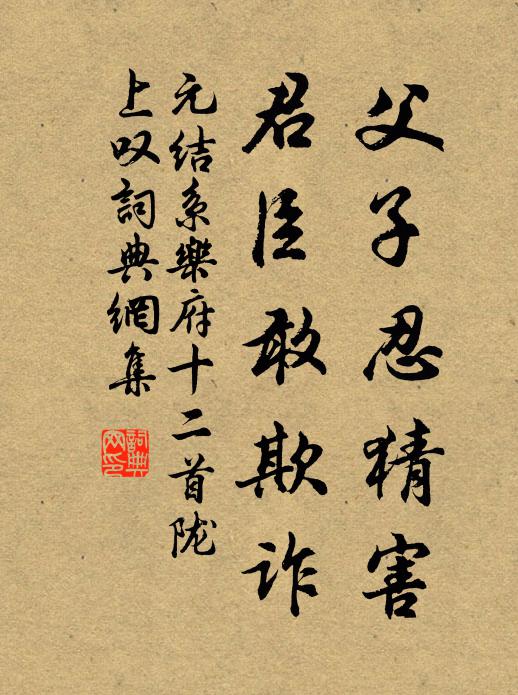 父子忍猜害
君臣敢欺诈
元结系樂府十二首陇
上叹詞典網集
詞典網印